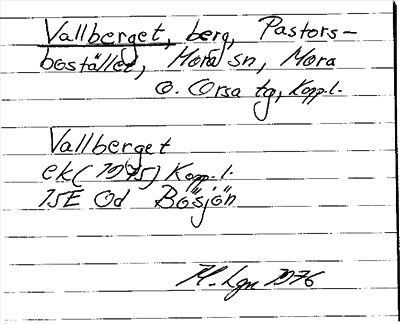 Vallberget, berg, Pastors-
bostället, Mora sn, Mora
o. Orsa tg, Kopp. l.
Vallberget
ek (1975) Kopp. l.
15E Od Bösjön
M. Lgn 1976